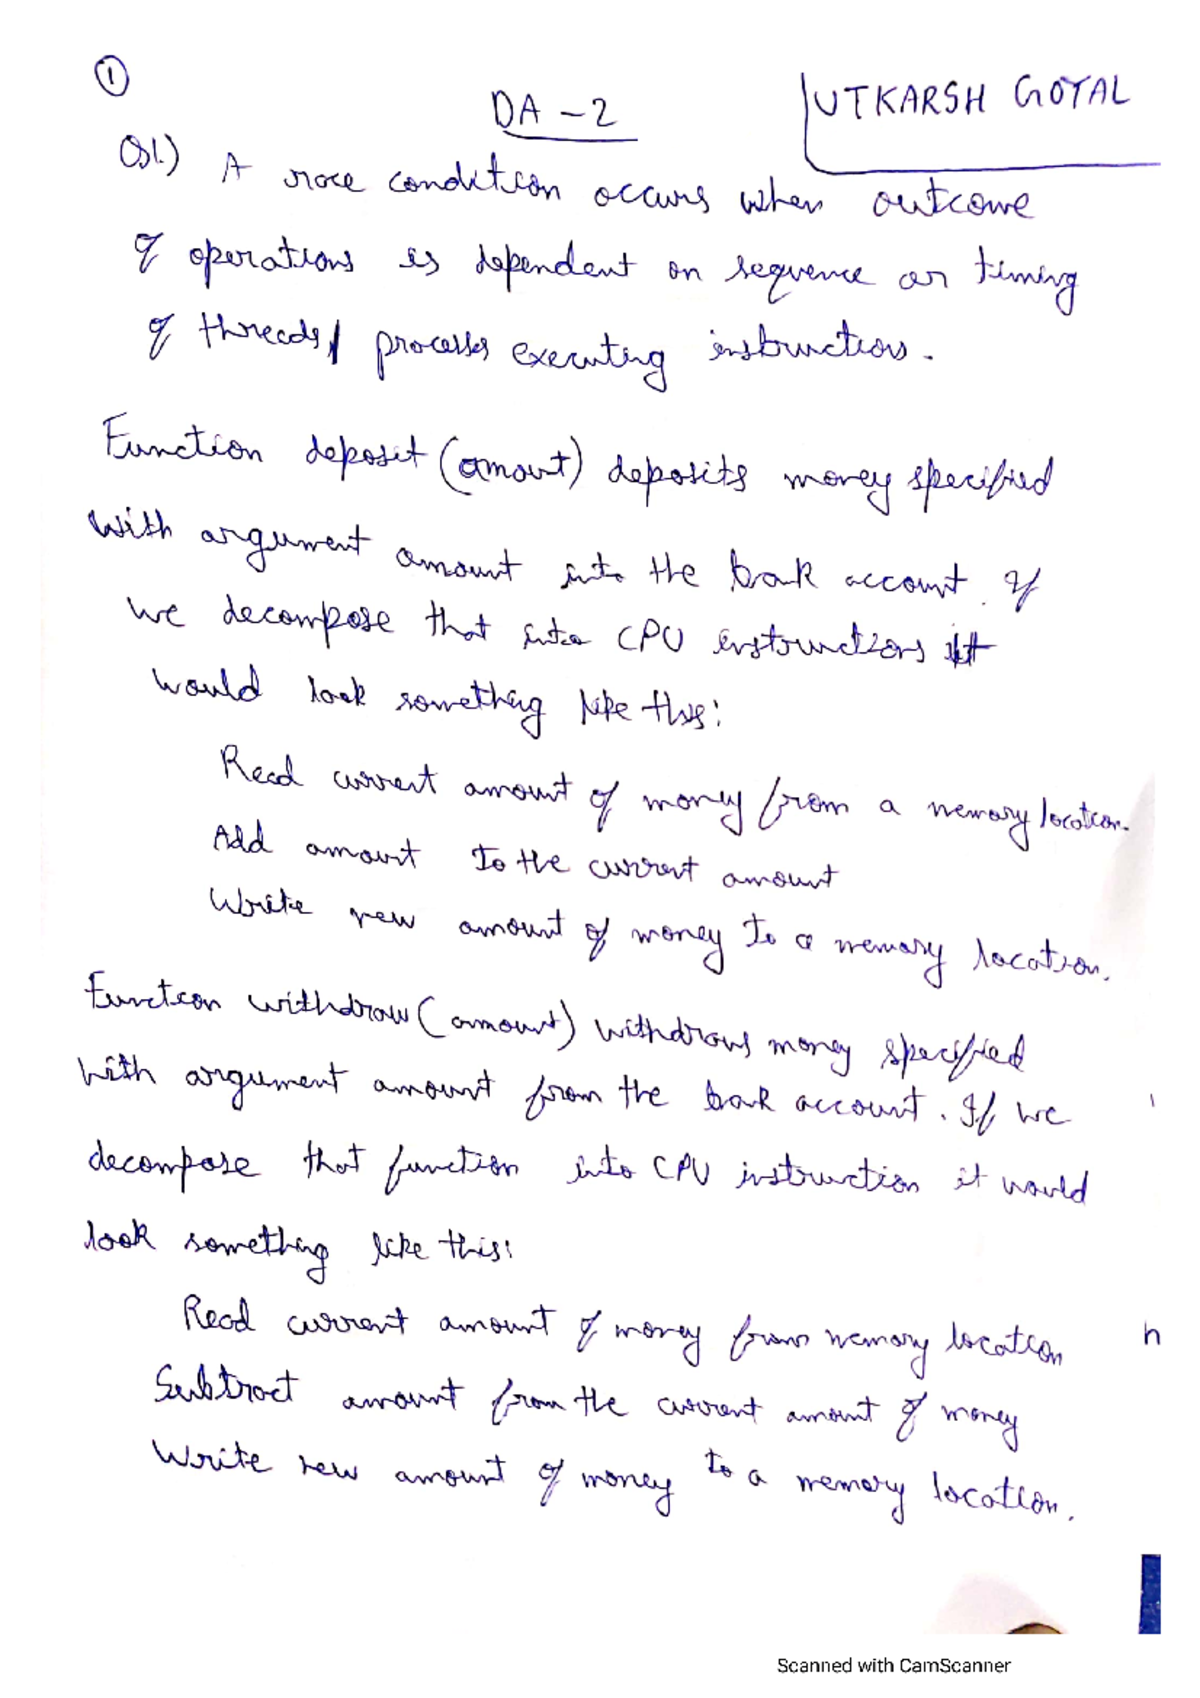 ①
DA - 2
UTKARSH GOYAL
Q1.) A race condition occurs when outcome
of operations is dependent on sequence or timing
of threads/ processes executing instructions.
Function deposit (amount) deposits money specified
with argument amount into the bank account. If
we decompose that into CPU instructions it
would look something like this:
Read current amount of money from a memory location.
Add amount to the current amount
Write new amount of money to a memory location.
Function withdraw (amount) withdraws money specified
with argument amount from the bank account. If we
decompose that function into CPU instruction it would
look something like this:
Read current amount of money from memory location
h
Subtract amount from the current amount of money
Write new amount of money to a memory location.
Scanned with CamScanner